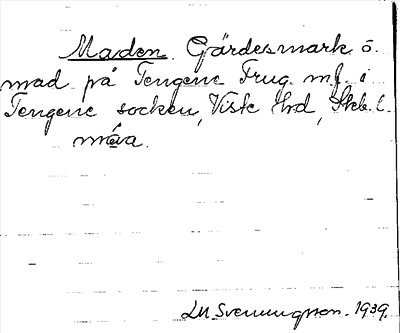 Maden. Gärdesmark o.
mad på Tengene Frug. m.fl. i
Tengene socken, Viste Hrd, Skb. l.
måa.
LM. Svenungsson. 1939.